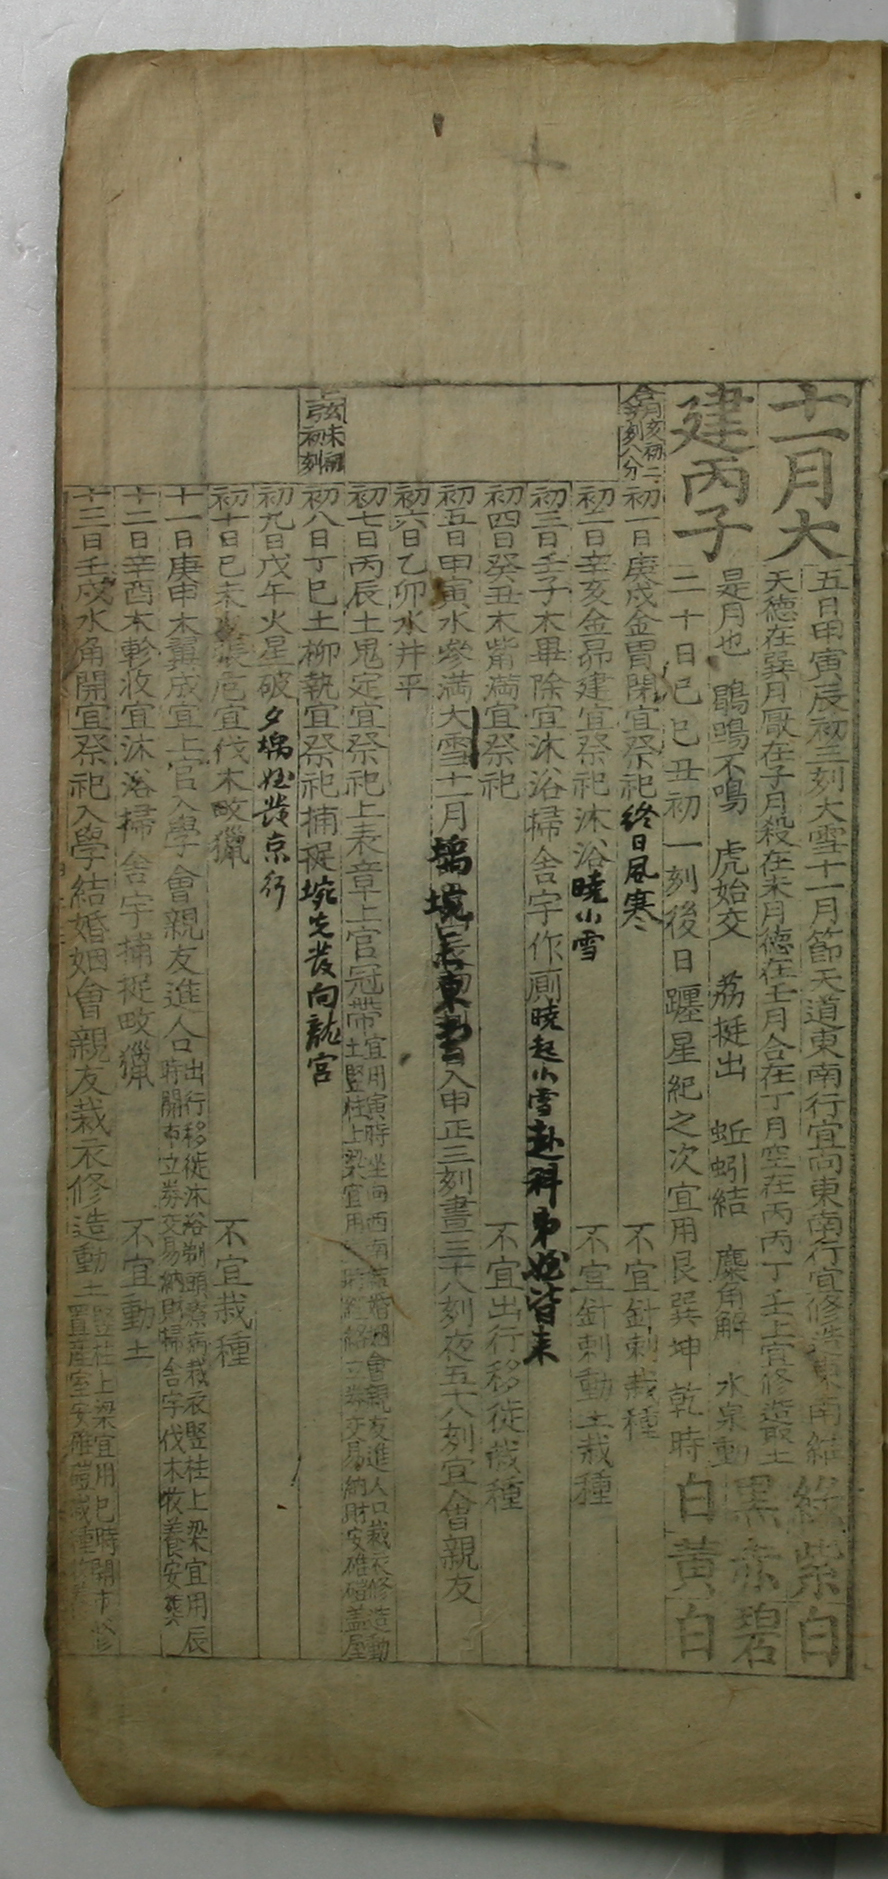 十一月大
建丙子
五日甲寅辰初三刻大雪十一月節天道東南行宜向東南行宜修造東南維
天德在巽月厭在子月殺在未月德在壬月合在丁月空在丙丙丁壬上宜修造取土
是月也 鶡鴠不鳴 虎始交 荔挺出 蚯蚓結 麋角解 水泉動
二十日己巳丑初一刻後日躔星紀之次宜用艮巽坤乾時
綠紫白
黑赤碧
白黃白
初一日庚戌金胃閉宜祭祀終日風寒 不宜針刺栽種
初二日辛亥金昴建宜祭祀沐浴曉小雪 不宜針刺動土栽種
初三日壬子木畢除宜沐浴掃舍宇作厠曉起小雪赴科弟姪皆来
初四日癸丑木觜滿宜祭祀 不宜出行移徙栽種
初五日甲寅水參滿大雪十一月 入申正三刻晝三十八刻夜五十八刻宜會親友
初六日乙卯水井平
初七日丙辰土鬼定宜祭祀上表章上官冠帶宜用寅時坐向西南結婚姻會親友進人口裁衣修造動
土竪柱上梁宜用 時經絡立券交易納財安碓磑蓋屋
上弦未初初刻
初八日丁巳土柳執宜祭祀捕捉埦先发向龍宮
初九日戊午火星破夕㙐姪發京行
初十日己未火張危宜伐木畋獵 不宜栽種
十一日庚申木翼成宜上官入學會親友進人口出行移徙沐浴剃頭療病裁衣竪柱上梁宜用辰
時開市立券交易納財掃舍宇伐木牧養安葬
十二日辛酉木軫收宜沐浴掃舍宇捕捉畋獵 不宜動土
十三日壬戌水角開宜祭祀入學結婚姻會親友裁衣修造動土竪柱上梁宜用巳時開市修
置產室安碓磑栽種牧養